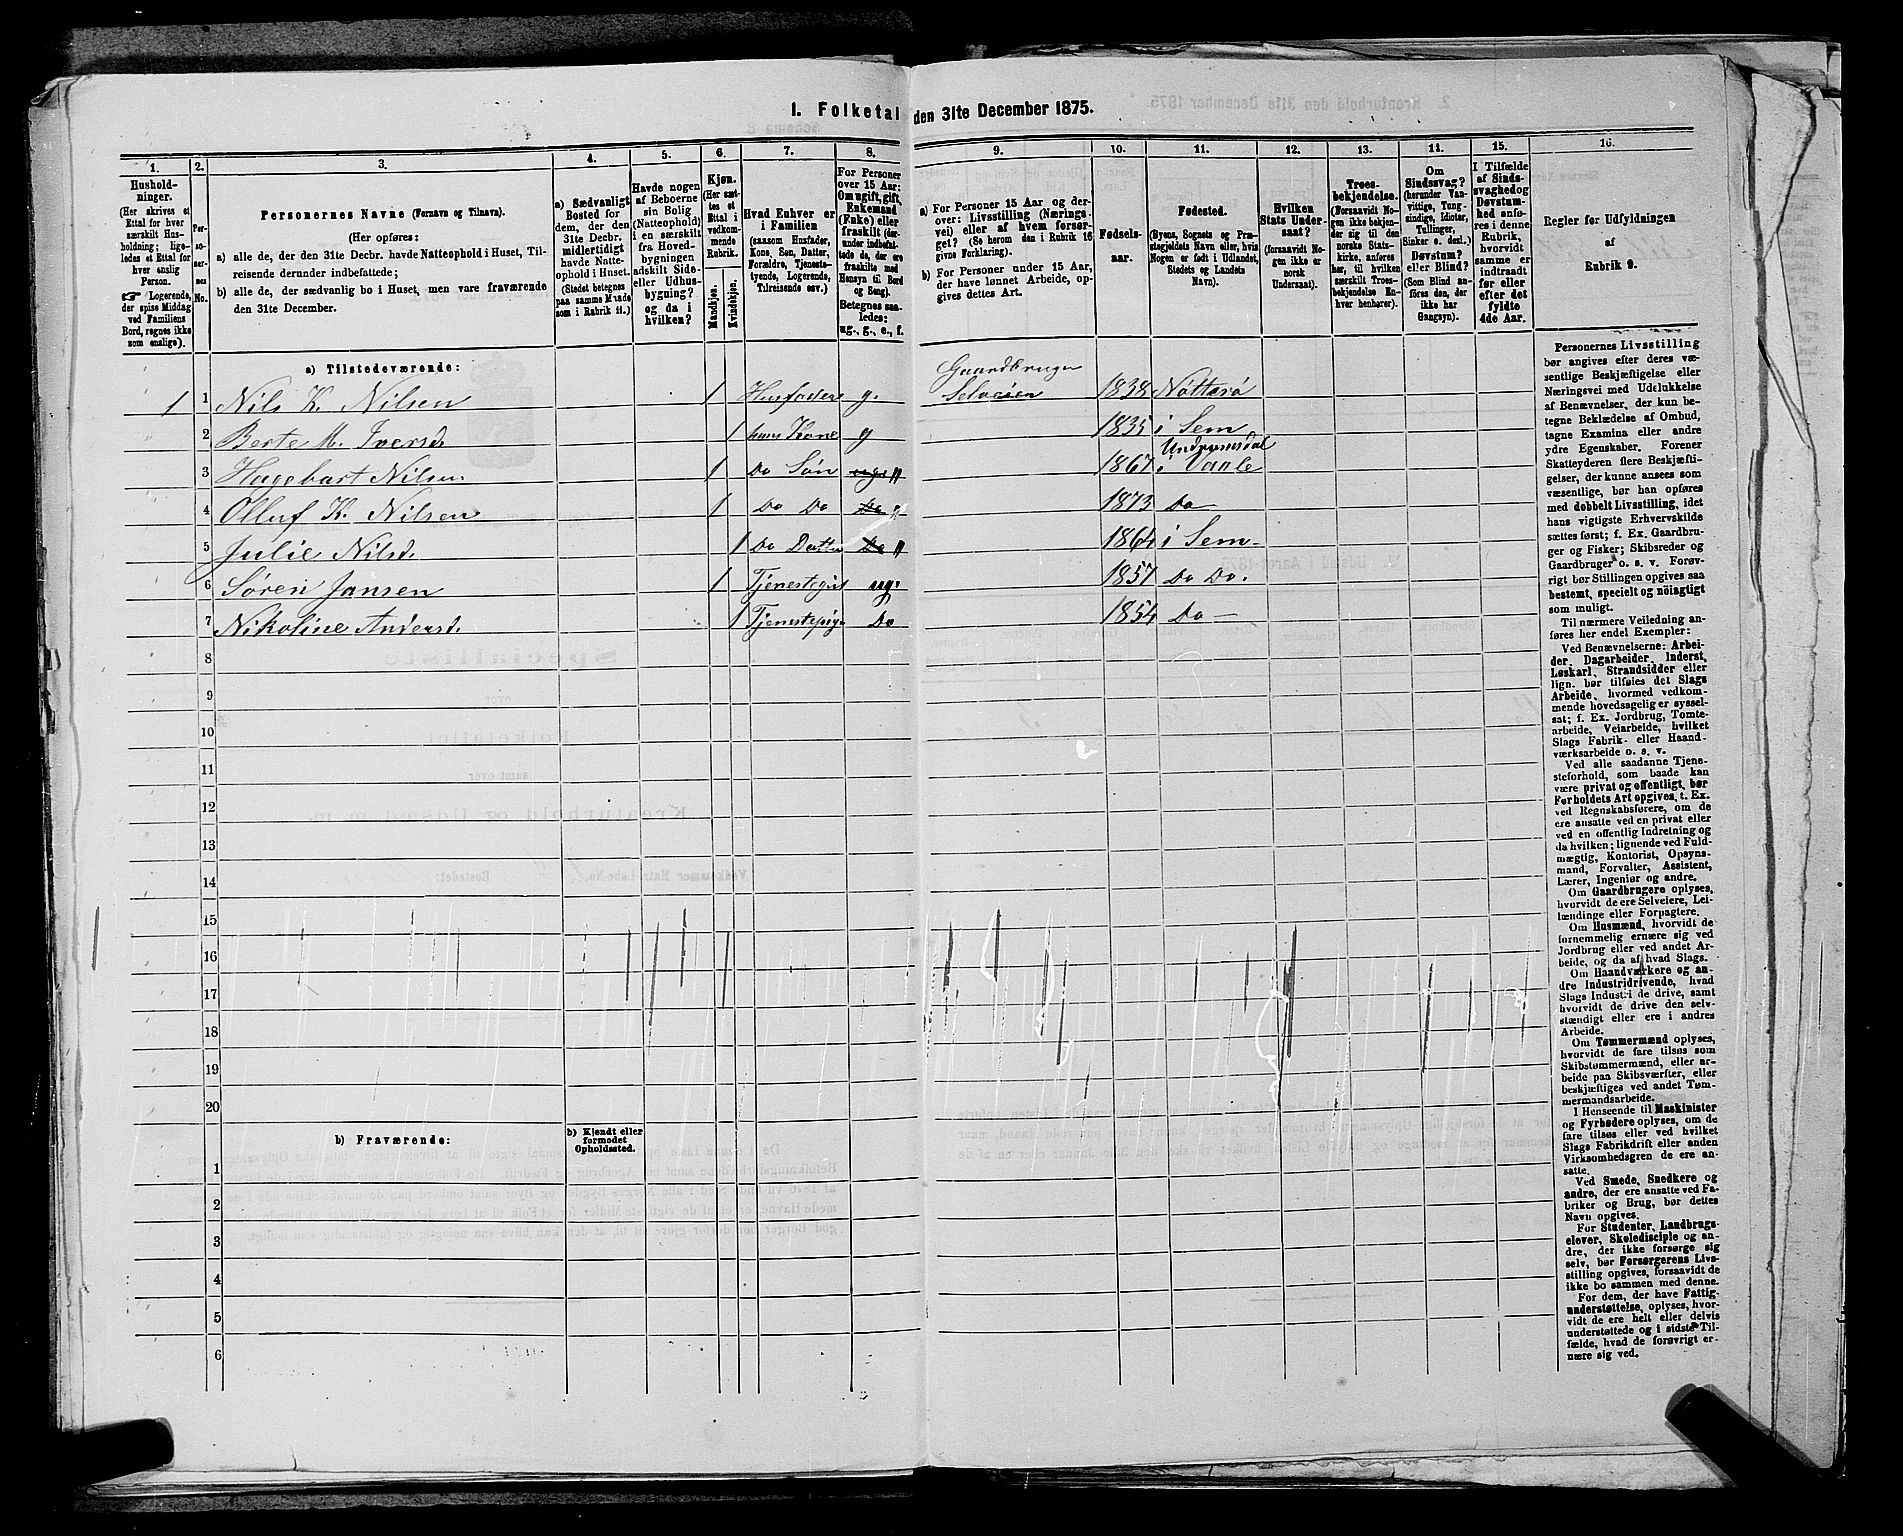 1. Folketal den 31te December 1875.
1.
2.
3.
4.
5.
6.
7.
8.
9.
10.
11.
12.
13.
14.
15.
16.
Hushold-
ninger.
(Her skrives et
Ettal for hver
særskilt Hus-
holdning; lige-
ledes et Ettal for
hver enslig
Person.
☞ Logerende,
der spise Middag
ved Familiens
Bord, regnes ikke
som enslige).
Per-
so-
ner-
nes
No.
Personernes Navne (Fornavn og Tilnavn).
(Her opføres:
a) alle de, der den 31te Decbr. havde Natteophold i Huset, Til-
reisende derunder indbefattede;
b) alle de, der sædvanlig bo i Huset, men vare fraværende
den 31te December.
a) Sædvanligt
Bosted for
dem, der den
31te Decbr.
midlertidigt
havde Natte-
ophold i Huset.
(Stedet betegnes
paa samme Maade
som i Rubrik 11.)
Havde nogen
af Beboerne
sin Bolig
(Natteophold)
i en særskilt
fra Hoved-
bygningen
adskilt Side-
eller Udhus-
bygning?
og da i
hvilken?
Kjøn.
(Her sæt-
tes et
Ettal i
vedkom-
mende
Rubrik.
Mandkjøn.
Kvindekjøn.
Hvad Enhver er
i Familien
(saasom Husfader,
Kone, Søn, Datter,
Forældre, Tjeneste-
tyende, Logerende,
Tilreisende osv.)
For Personer
over 15 Aar:
Om ugift, gift,
Enkemand
(Enke) eller
fraskilt (der-
under indbefat-
tede de, der ere
fraskilte med
Hensyn til Bord
og Seng).
Betegnes saa-
ledes:
ug., g., e., f.
a) For Personer 15 Aar og der-
over: Livsstilling (Nærings-
vei) eller af hvem forsør-
get? (Se herom den i Rubrik 16
givne Forklaring).
b) For Personer under 15 Aar,
der have lønnet Arbeide, op-
gives dettes Art.
Fødsels-
aar.
Fødested.
(Byens, Sognets og Præ-
stegjeldets Navn eller, hvis
Nogen er født i Udlandet,
Stedets og Landets
Navn).
Hvilken
Stats Under-
saat?
(forsaavidt No-
gen ikke er
norsk
Undersaat).
Troes-
bekjendelse.
(Forsaavidt No-
gen ikke bekjen-
der sig til den
norske Stats-
kirke, anføres
her, til hvilken
særskilt Troes-
bekjendelse En-
hver henhører).
Om
Sindssvag?
(herunder Van-
vittige, Tung-
sindige, Idioter,
Tullinger,
Sinker o. desl.)
Døvstum?
eller Blind?
(Som Blind an-
føres den, der
ikke har
Gangsyn).
I Tilfælde
af Sinds-
svaghed og
Døvstum-
hed anfø-
res i denne
Rubrik,
hvorvidt
samme er
indtraadt
før eller
efter det
fyldte
4de Aar.
Regler for Udfyldningen
af
Rubrik 9.
a) Tilstedeværende:
1 1 Nils K. Nilsen 1 Husfader g. Gaardbruger
Selveien 1838 Nötterö
2 Berte M. Iversd. 1 hans Kone g 1835 i Sem
3 Hagebart Nilsen. 1 Do Søn ug. " 1867 Undrumsdal
i Vaale
4 Olluf K. Nilsen 1 Do Do Do " 1873 Do
5 Julie Nilsd. 1 Do Datter Do " 1864 i Sem
6 Søren Jansen 1 Tjenestegut ug. 1857 Do Do.
7 Nikoline Andersd. 1 Tjenestepige Do 1854 Do
8
9
10
11
12
13
14
15
16
17
18
19
20
b) Fraværende:
b) Kjendt eller
formodet
Opholdssted.
1
2
3
4
5
6
Personernes Livsstilling
bør angives efter deres væ-
sentlige Beskjæftigelse eller
Næringsvei med Udelukkelse
af Benævnelser, der kun be-
tegne Beklædelse af Ombud,
tagne Examina eller andre
ydre Egenskaber. Forener
Skatteyderen flere Beskjæfti-
gelser, der kunne ansees som
væsentlige, bør han opføres
med dobbelt Livsstilling, idet
hans vigtigste Erhvervskilde
sættes først; f. Ex. Gaardbru-
ger og Fisker; Skibsreder og
Gaardbruger o. s. v. Forøv-
rigt bør Stillingen opgives saa
bestemt, specielt og nøiagtigt
som muligt.
Til nærmere Veiledning an-
føres her endel Exempler:
Ved Benævnelserne: Arbei-
der, Dagarbeider, Inderst,
Løskarl, Strandsidder eller
lign. bør tilføies det Slags
Arbeide, hvormed vedkom-
mende hovedsagelig er syssel-
sat; f. Ex. Jordbrug, Tomte-
arbeide, Veiarbeide, hvilket
Slags Fabrik- eller Haand-
værksarbeide o. s. v.
Ved alle saadanne Tjene-
steforhold, som baade kan
være privat og offentligt, bør
Forholdets Art opgives, t. Ex.
ved Regnskabsførere, om de
ere ansatte ved en privat eller
ved en offentlig Indretning og
da hvilken; lignende ved Fuld-
mægtig, Kontorist, Opsyns-
mand, Forvalter, Assistent,
Lærer, Ingeniør og andre.
Om Gaardbrugere oplyses,
hvorvidt de ere Selveiere, Lei-
lændinge eller Forpagtere.
Om Husmænd, hvorvidt de
fornemmelig ernære sig ved
Jordbrug eller ved andet Ar-
beide, og da af hvad Slags.
Om Haandværkere og an-
dre Industridrivende, hvad
Slags Industri de drive, samt
hvorvidt de drive den selv-
stændigt eller ere i andres
Arbeide.
Om Tømmermænd oplyses,
hvorvidt de fare tilsøs som
Skibstømmermænd, eller ar-
beide paa Skibsværfter, eller
beskjæftiges ved andet Tøm-
mermandsarbeide.
I Henseende til Maskinister
og Fyrbødere oplyses, om de
fare tilsøs eller ved hvilket
Slags Fabrikdrift eller anden
Virksomhedsgren de ere an-
satte.
Ved Smede, Snedkere og
andre, der ere ansatte ved Fa-
briker og Brug, bør dettes
Navn opgives.
For Studenter, Landbrugs-
elever, Skoledisciple og an-
dre, der ikke forsørge sig
selv, bør Forsørgerens Livs-
stilling opgives, forsaavidt de
ikke bo sammen med denne.
For dem, der have Fattig-
understøttelse, oplyses, hvor-
vidt de ere helt eller delvis
understøttede og i sidste Til-
fælde, hvad de forøvrigt er-
nære sig ved.